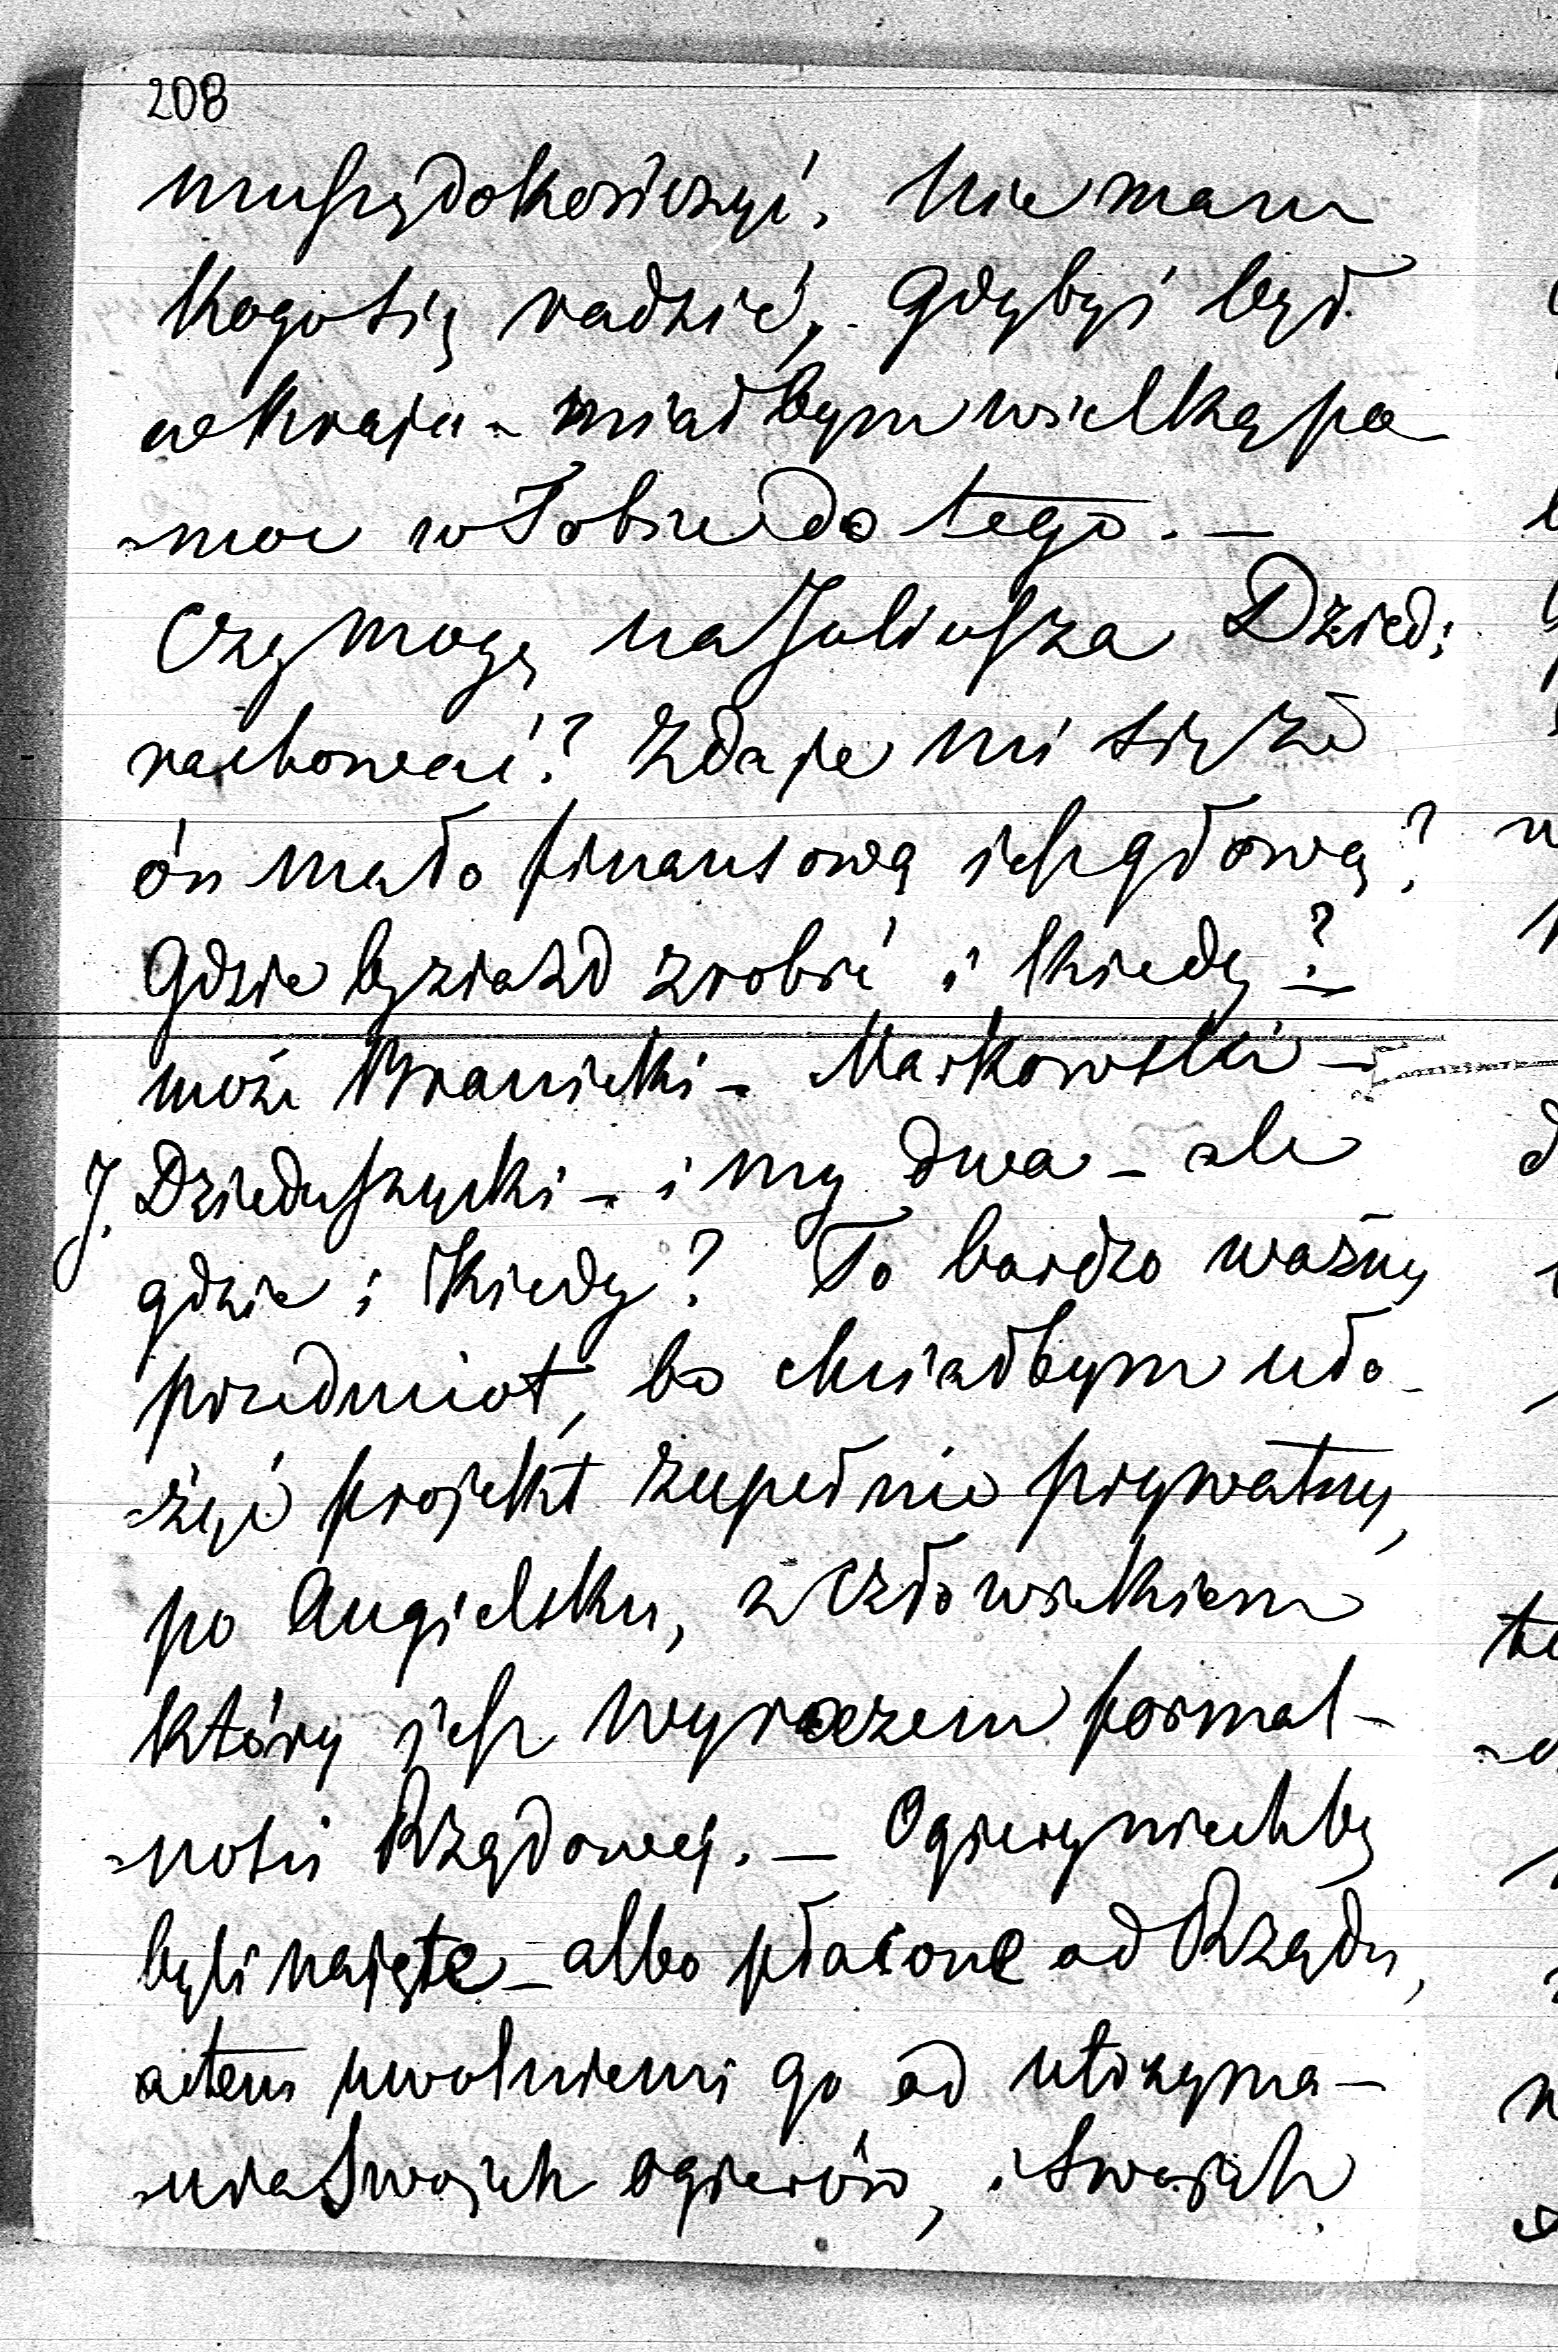 208
muszę dokończyć. Nie mam
kogo się radzić, gdybyś był
w kraju - miałbym wielką po
-moc w Tobie do tego. -
Czy mogę na Juliusza Dzied:
rachować? Zdaje mi się że
ón mało finansową jest głową?
Gdzie by ziazd zrobić i kiedy?
może Branicki - Markowski -
J. Dzieduszycki - i my dwa - ale
gdzie i kiedy? To bardzo ważny
przedmiot, bo chciałbym uło-
-żyć projekt zupełnie prywatny,
po Angielsku, z człowiekiem
który jest wyrazem formal-
-ności Rządowej. - Ogiery niechby
byli najęte - albo płacone od Rządu,
a tem uwolnieni go od utrzyma-
-nia Swojich ogierów, i Swojich